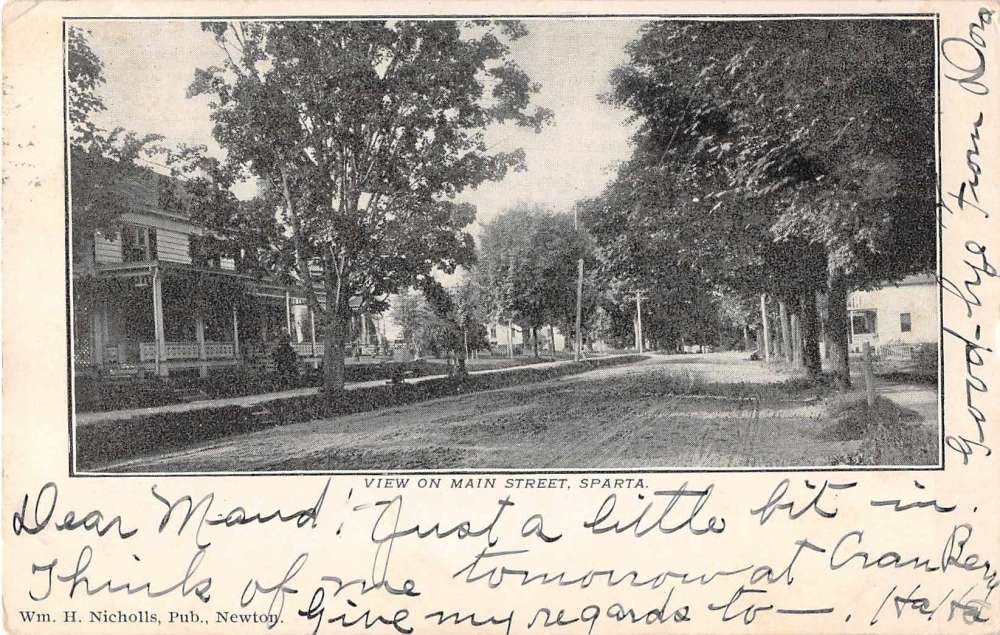 VIEW ON MAIN STREET, SPARTA.
Dear Maud! Just a little bit in.
Think of me tomorrow at CranBerry
Give my regards to — . Ha/Ha
Wm. H. Nicholls, Pub., Newton.
Good-bye from Dora